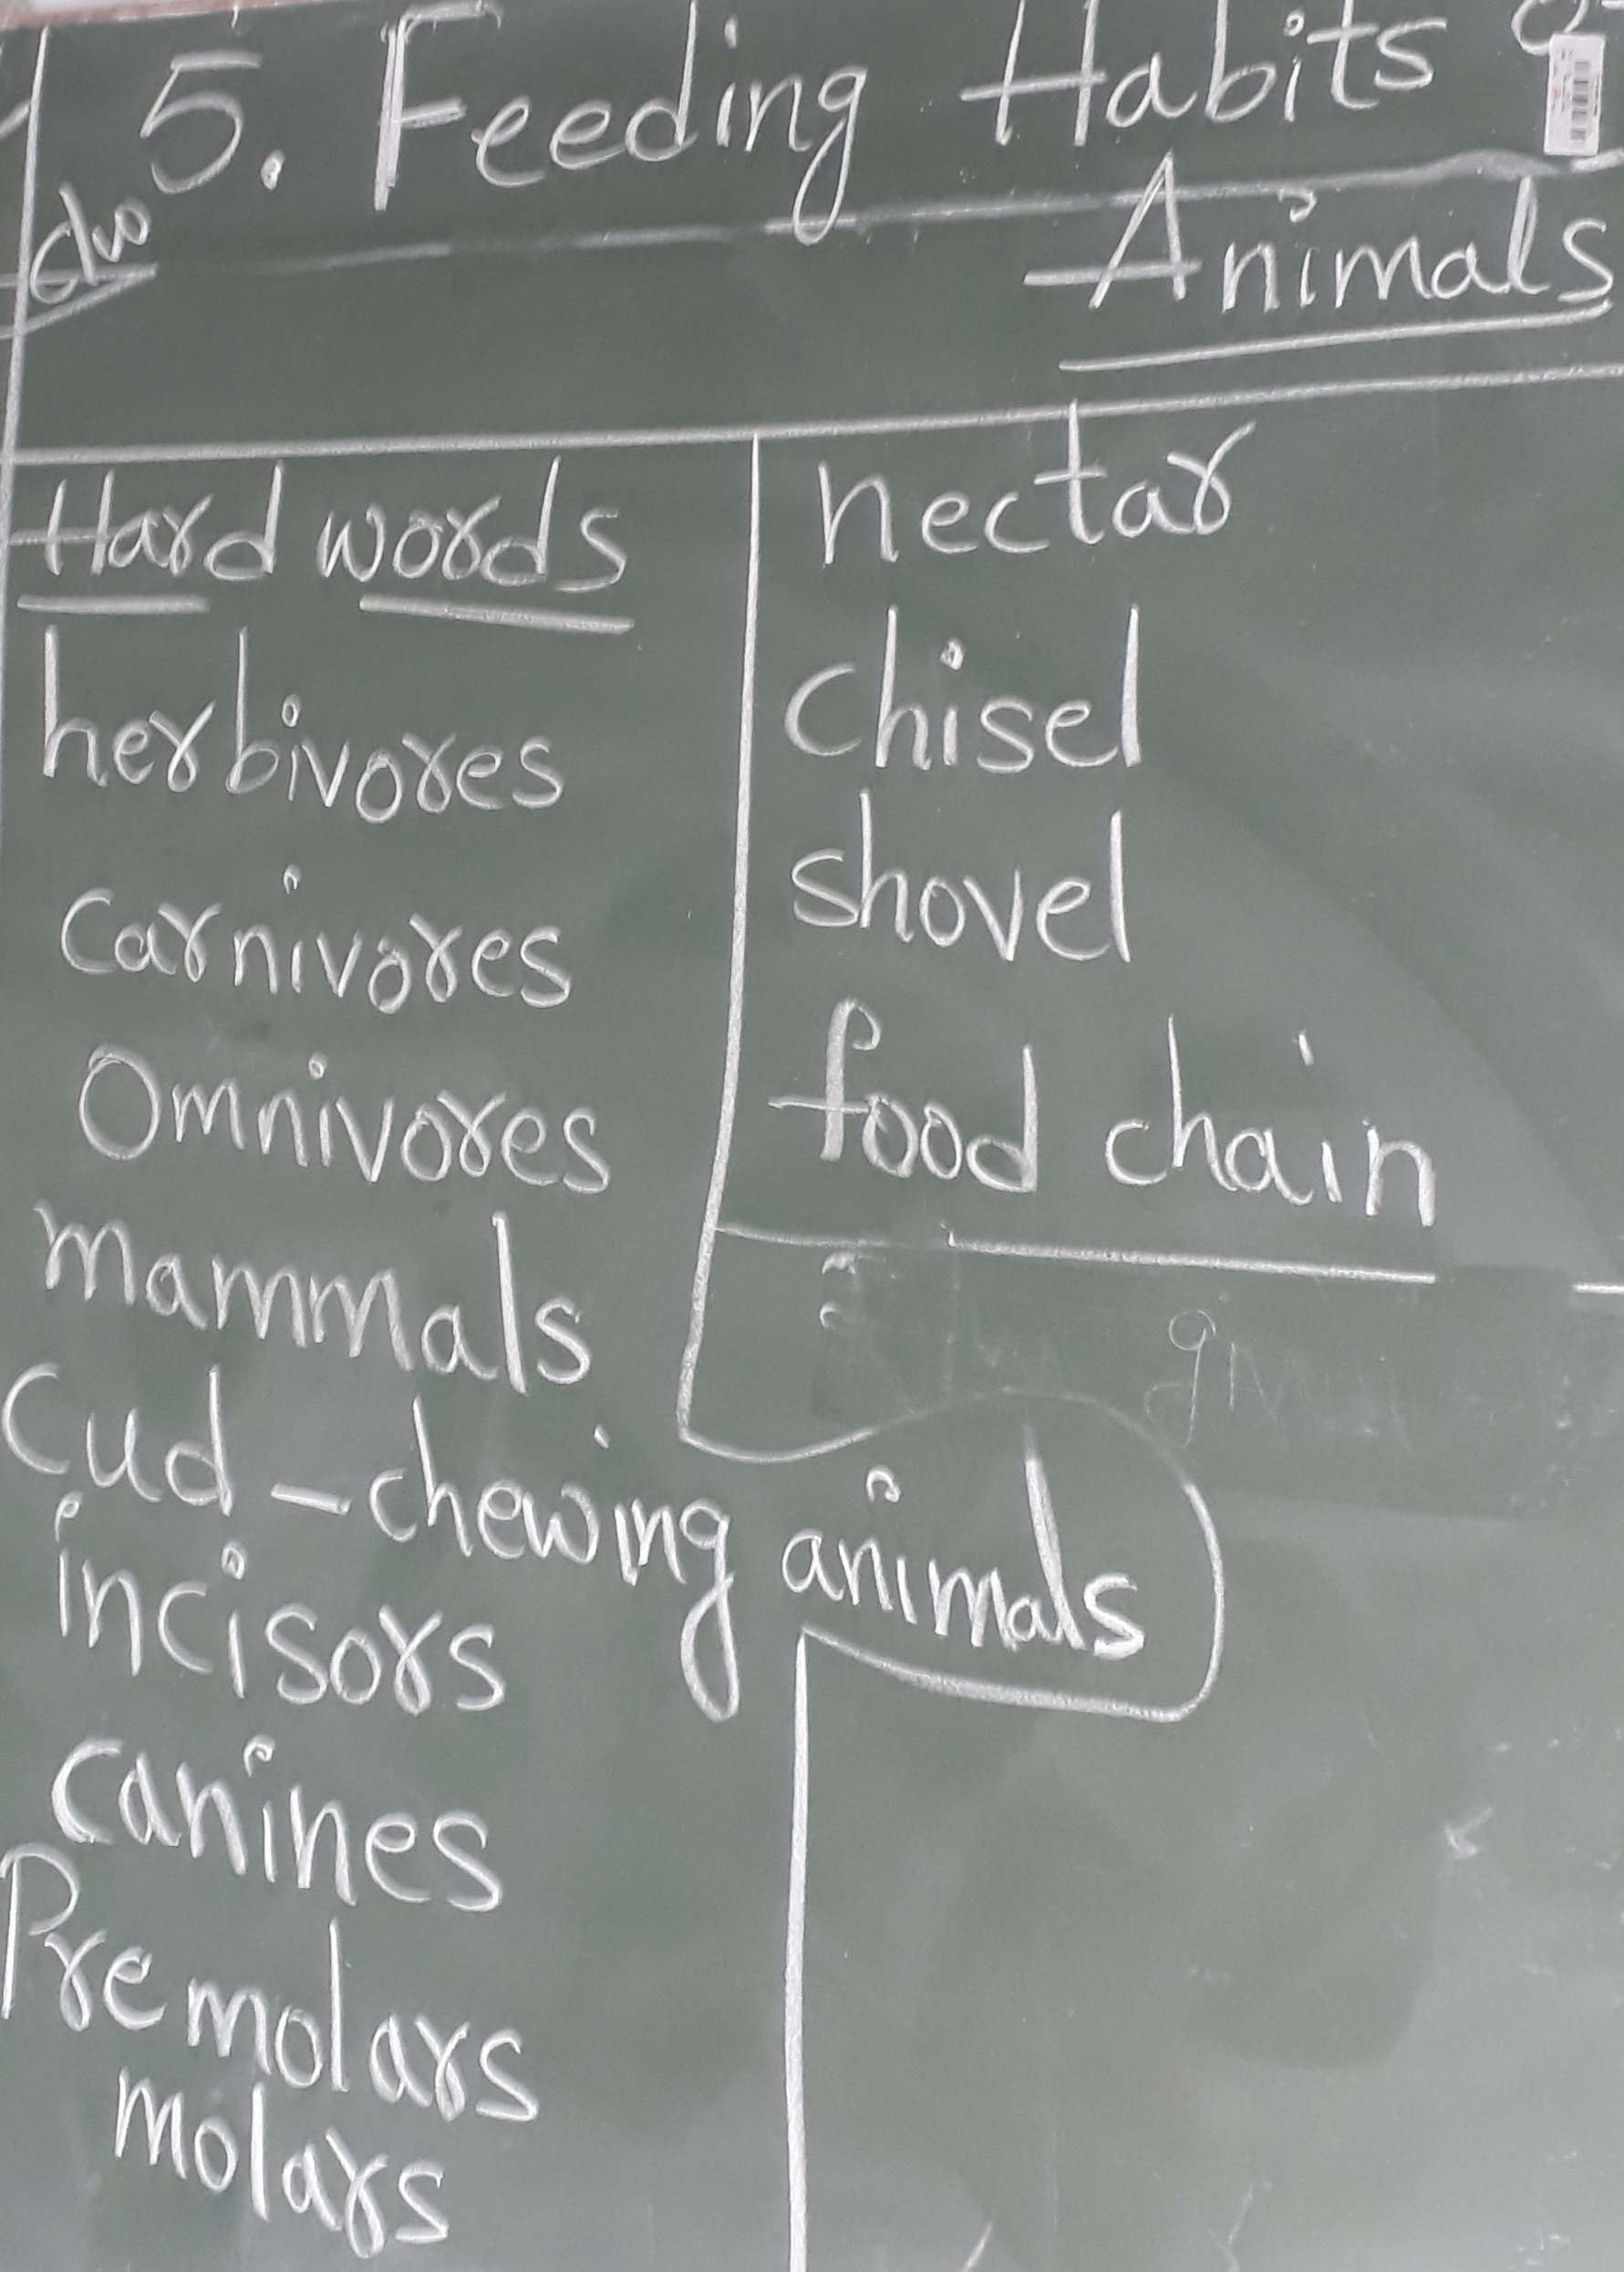 5. Feeding Habits
Animals
Hard words
herbivores
Carnivores
Omnivores
mammals
Cud-chewing animals
incisors
canines
Premolars
molars
nectar
Chisel
shovel
food chain